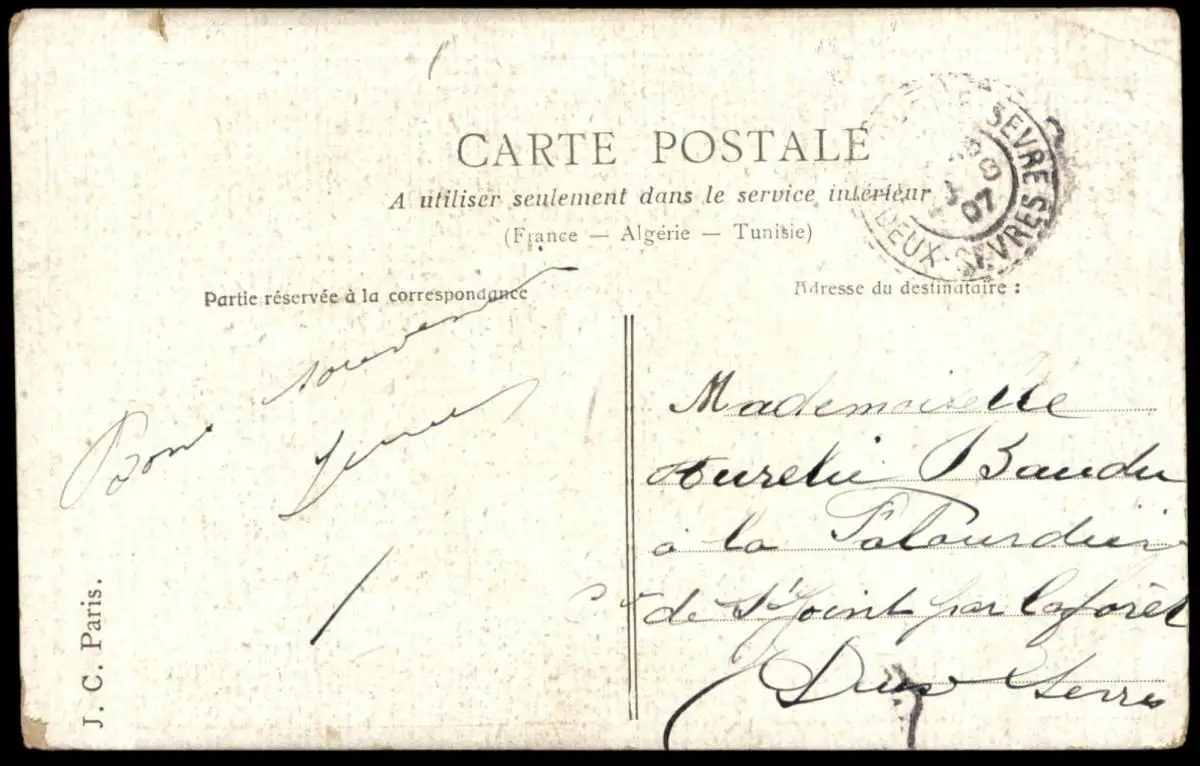 CARTE POSTALE
A utiliser seulement dans le service intérieur
(France — Algérie — Tunisie)
SEVRE
07
DEUX-SEVRES
Partie réservée à la correspondance
Adresse du destinataire :
Bon souvenir
Mademoiselle
Aurelie Baudu
à la
de St Joint par la forêt
Deux Sevres
J. C. Paris.